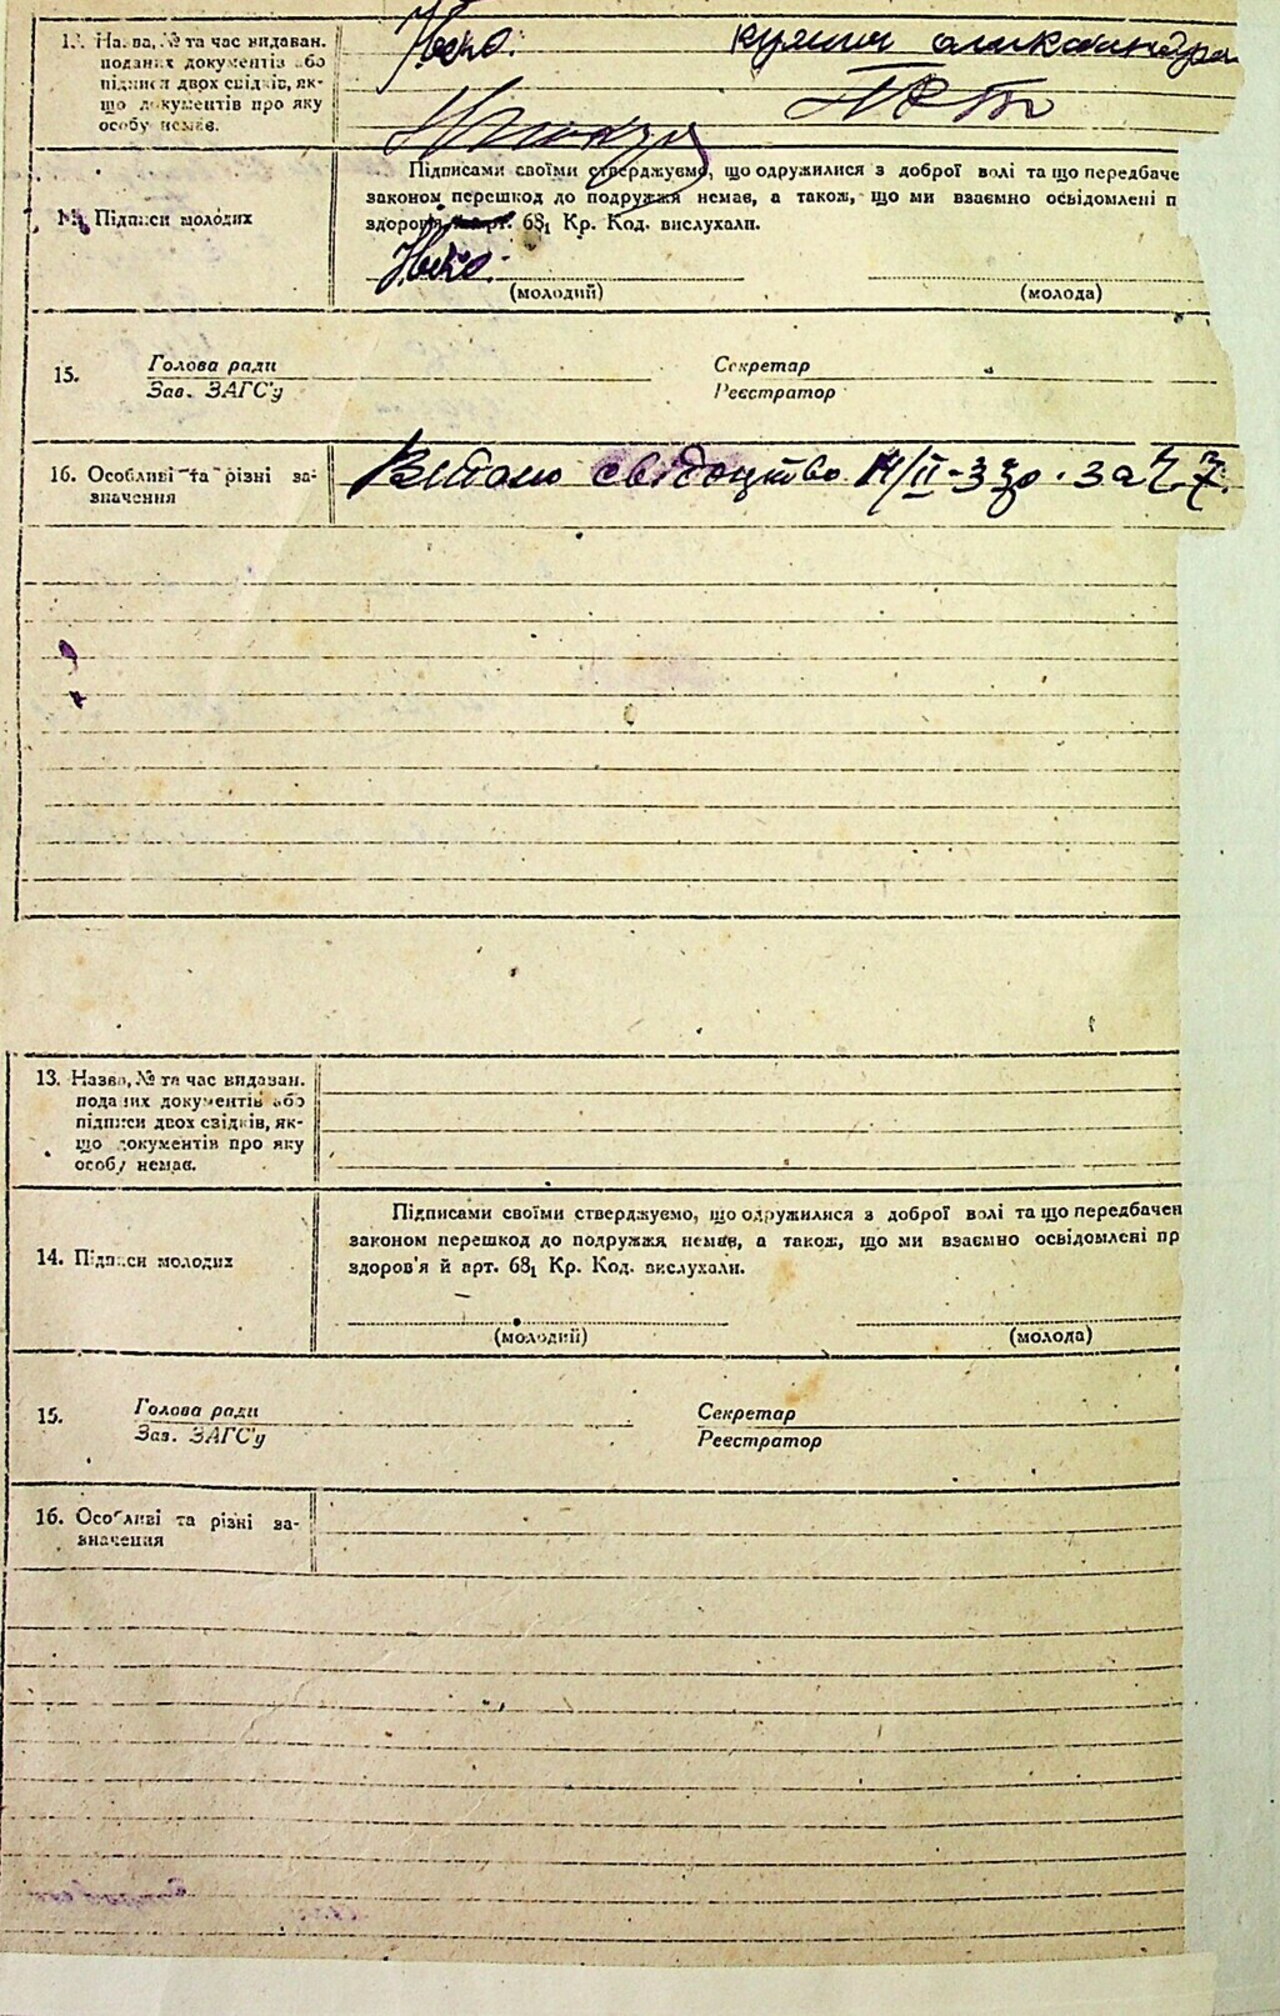 13. Назва, № та час видаван. поданих документів або підписи двох свідків, якщо документів про яку особу немає.
Підписами своїми стверджуємо, що одружилися з доброї волі та що передбаче
законом перешкод до подружжя немає, а також, що ми взаємно освідомлені п
14. Підписи молодих
здоров'я арт. 68₁ Кр. Код. вислухали.
(молодий) (молода)
15. Голова ради Секретар
Зав. ЗАГС'у Реєстратор
16. Особливі та різні за-
значення
Видано свідоцтво 14/II-33р. за Ч. 7.
13. Назва, № та час видаван.
поданих документів або
підписи двох свідків, як-
що документів про яку
особу немає.
Підписами своїми стверджуємо, що одружилися з доброї волі та що передбачен
законом перешкод до подружжя немає, а також, що ми взаємно освідомлені пр
14. Підписи молодих
здоров'я й арт. 68₁ Кр. Код. вислухали.
(молодий) (молода)
15. Голова ради Секретар
Зав. ЗАГС'у Реєстратор
16. Особливі та різні за-
значення